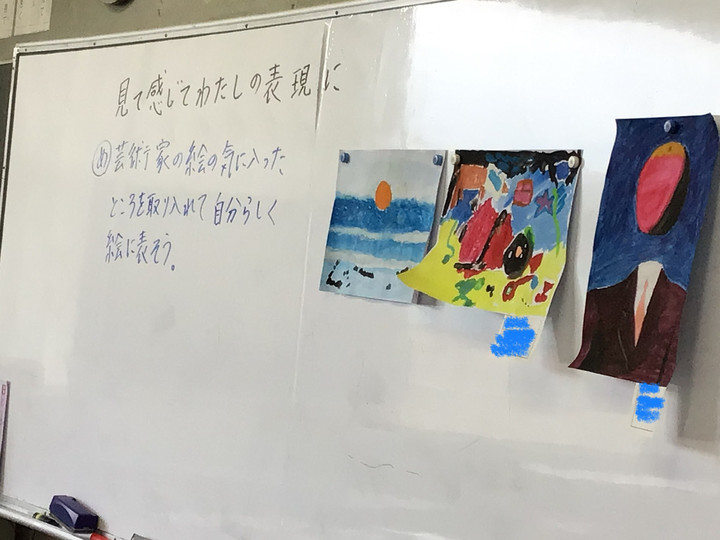 見て感じてわたしの表現に
め 芸術家の絵の気に入った
ところを取り入れて自分らしく
絵に表そう。